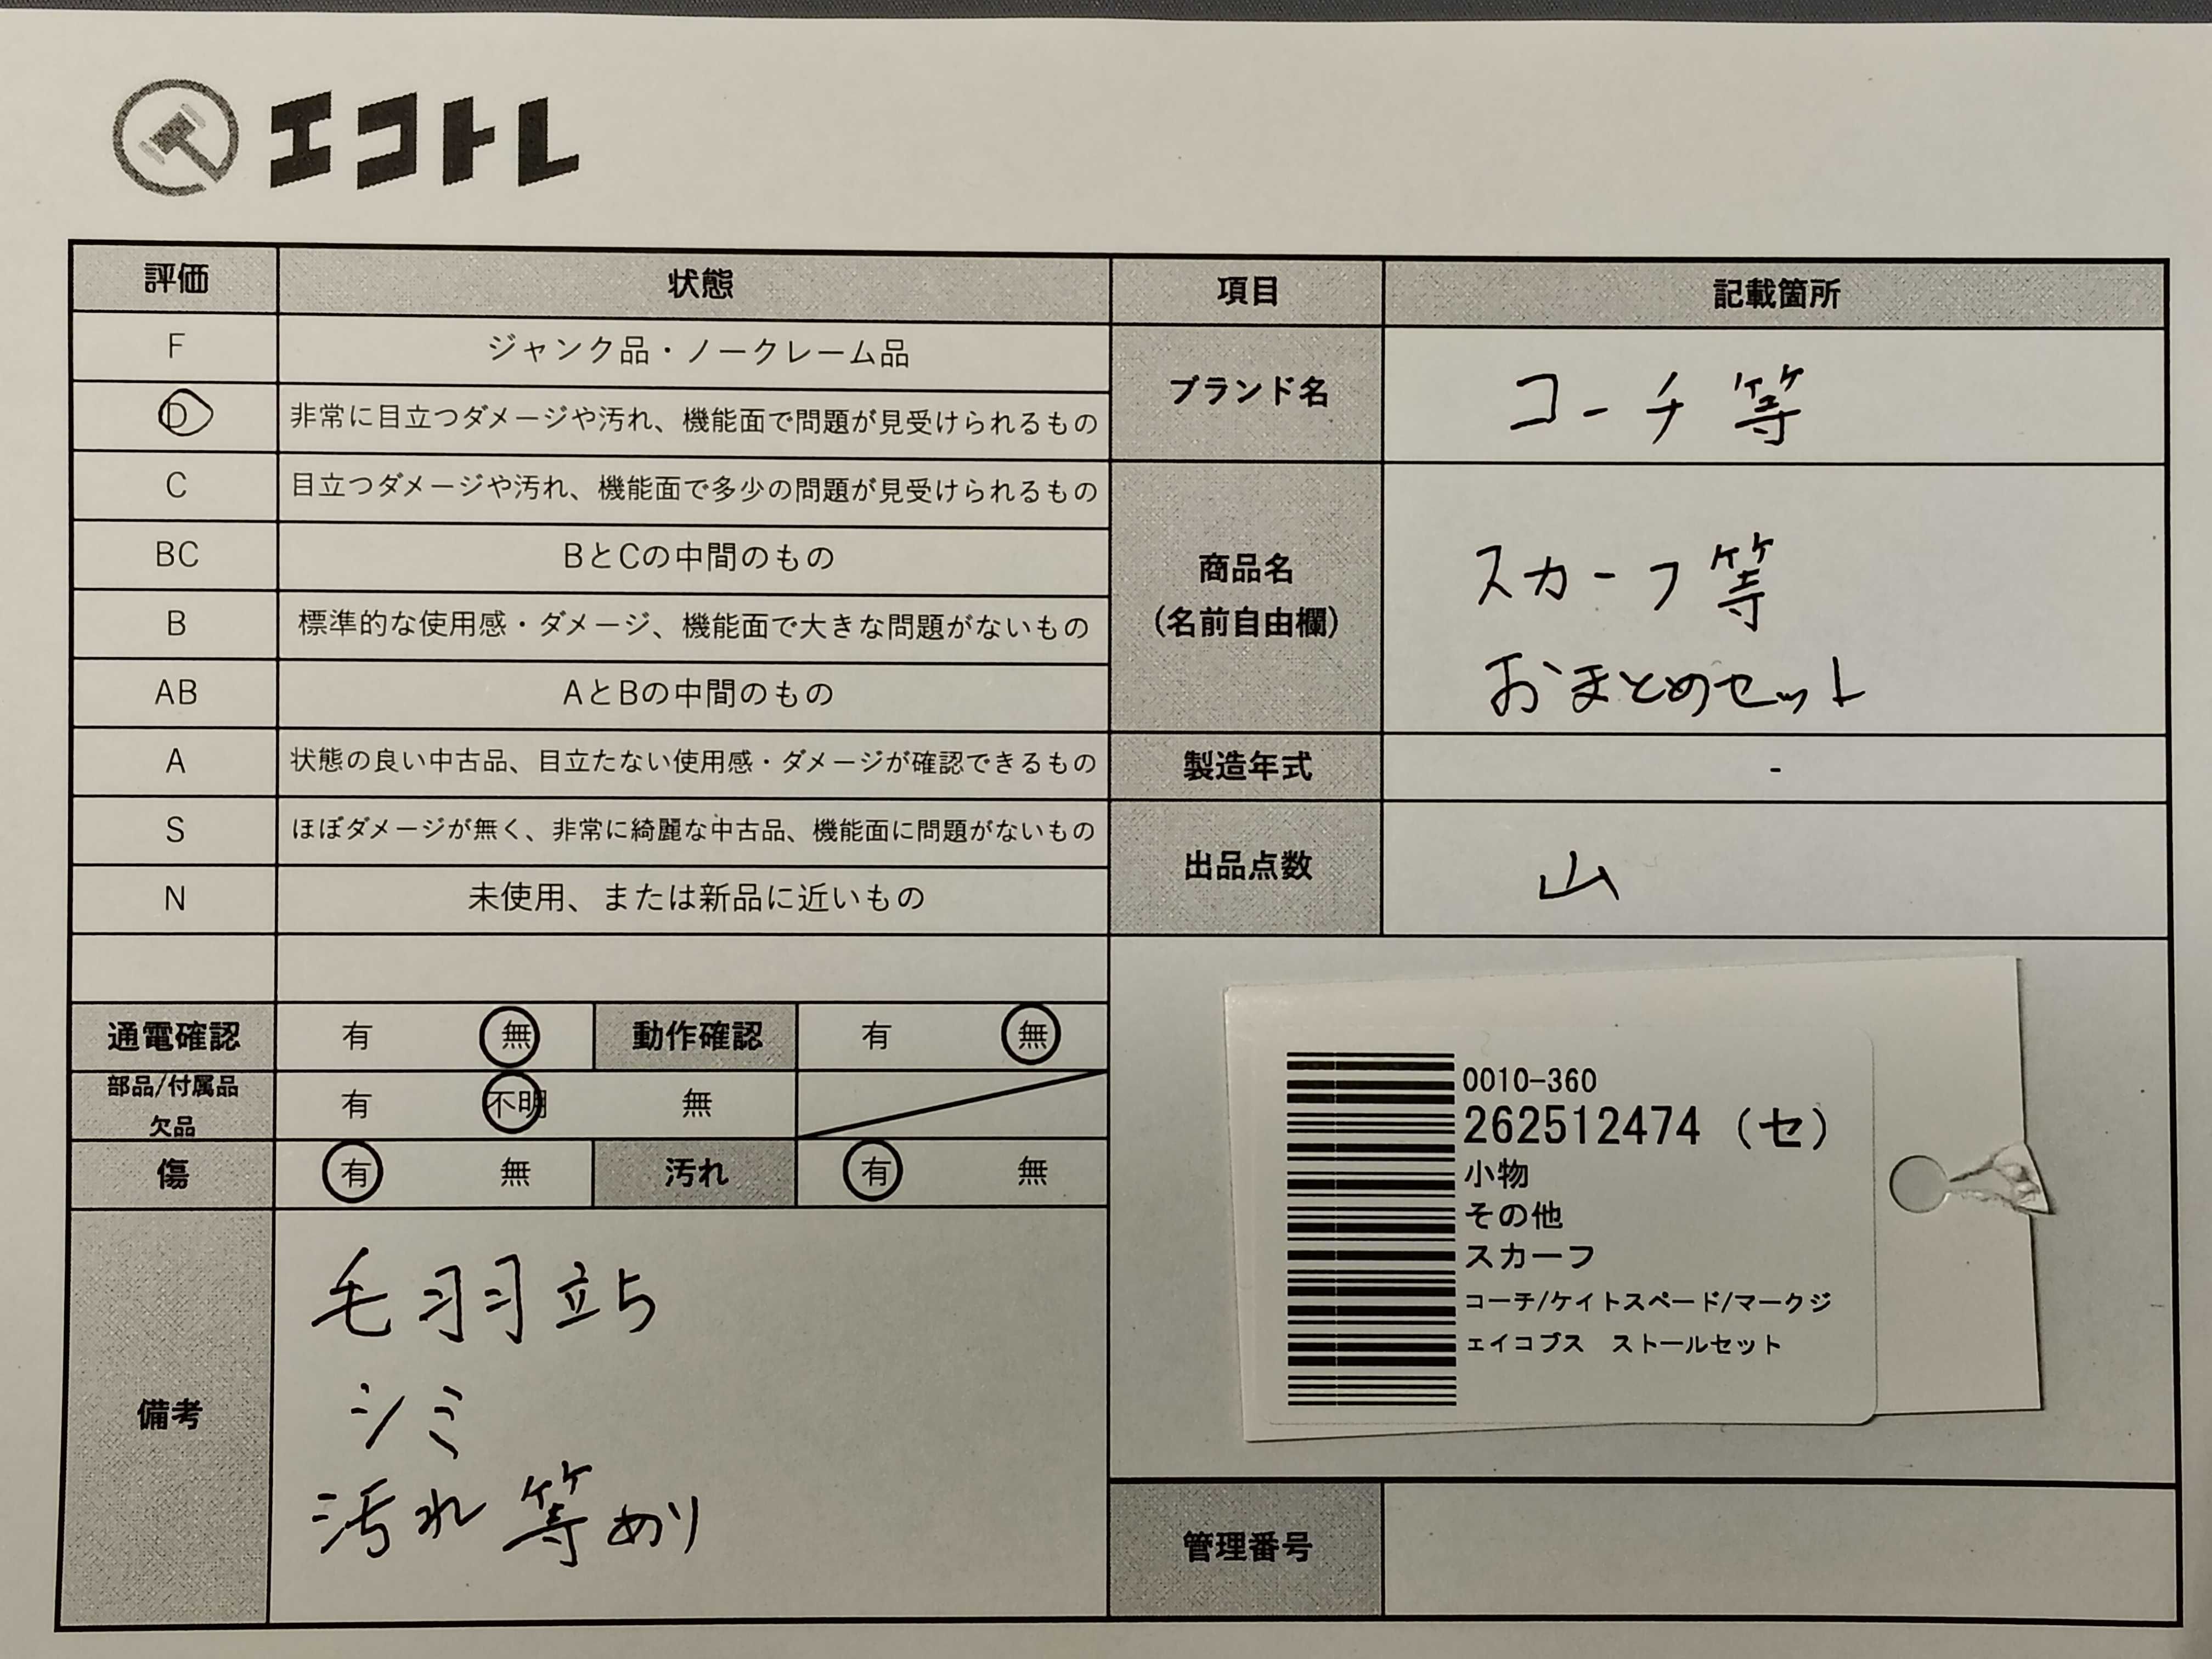 エコトレ
評価 状態 項目 記載箇所
F ジャンク品・ノークレーム品
D 非常に目立つダメージや汚れ、機能面で問題が見受けられるもの
ブランド名 コーチ等
C 目立つダメージや汚れ、機能面で多少の問題が見受けられるもの
BC BとCの中間のもの
B 標準的な使用感・ダメージ、機能面で大きな問題がないもの
AB AとBの中間のもの
商品名
(名前自由欄)
スカーフ等
おまとめセット
A 状態の良い中古品、目立たない使用感・ダメージが確認できるもの
製造年式 -
S ほぼダメージが無く、非常に綺麗な中古品、機能面に問題がないもの
N 未使用、または新品に近いもの
出品点数 山
通電確認 有 無 動作確認 有 無
部品/付属品
欠品
有 不明 無
傷 有 無 汚れ 有 無
備考
毛羽立ち
シミ
汚れ等あり
0010-360
262512474 (セ)
小物
その他
スカーフ
コーチ/ケイトスペード/マークジ
ェイコブス ストールセット
管理番号